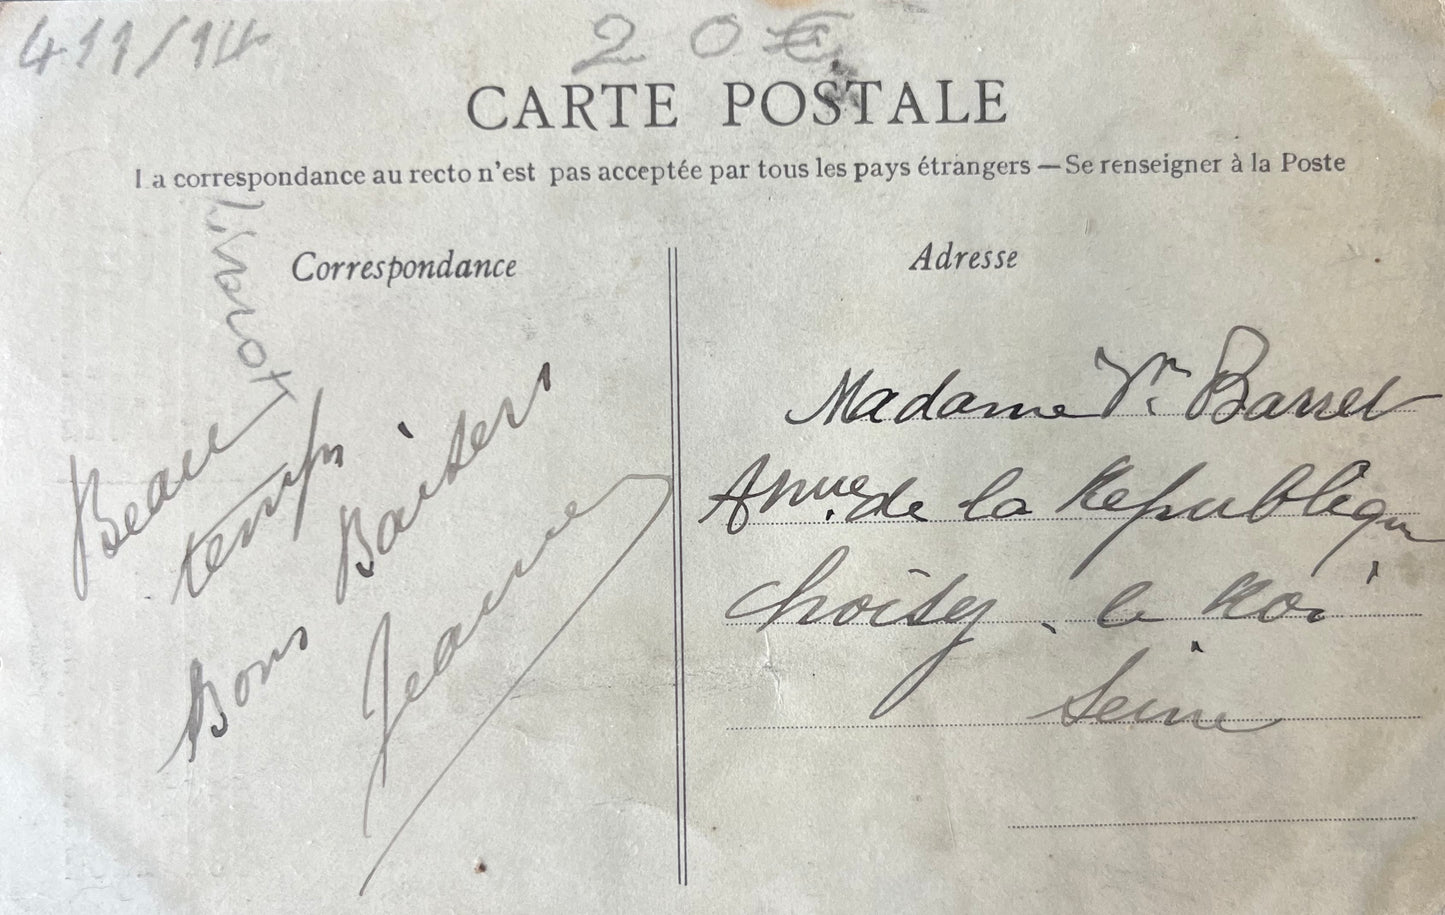 411/14
20€
CARTE POSTALE
La correspondance au recto n'est pas acceptée par tous les pays étrangers — Se renseigner à la Poste
Correspondance
Beau
temps.
Bons Baisers
Jeanne
Adresse
Madame Vve Barret
Anue de la République
Choisy. le Roi
Seine